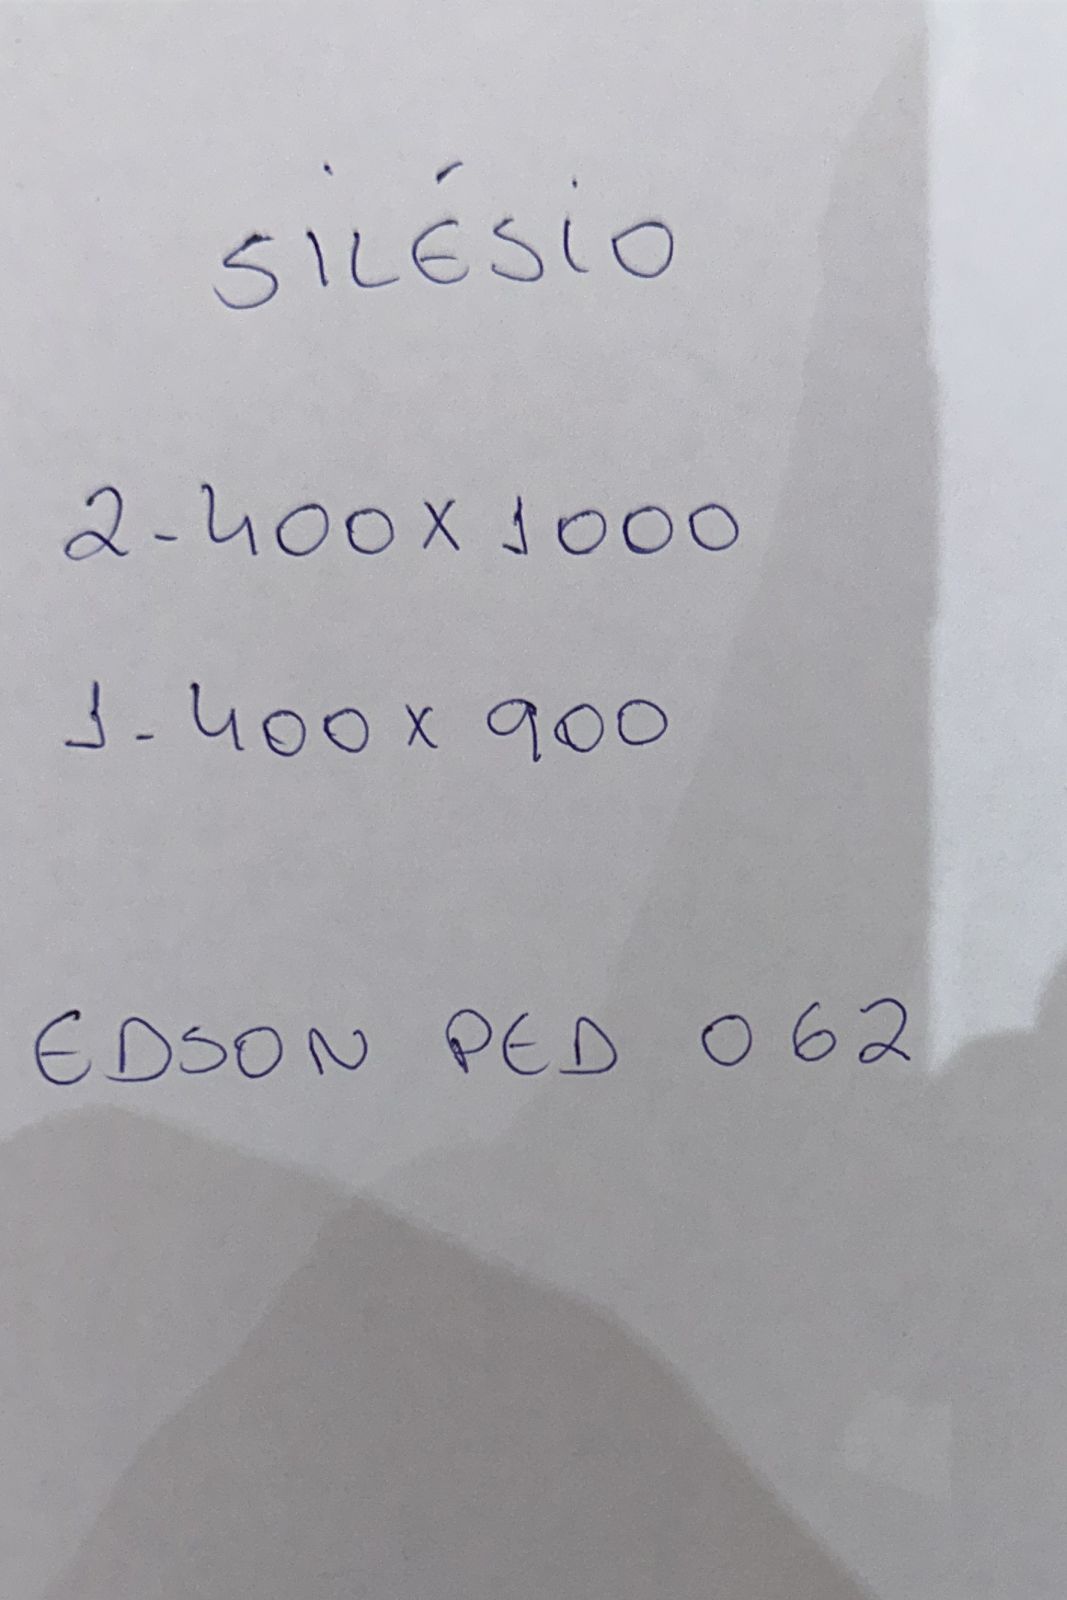 SILÉSIO
2-400X1000
1-400X900
EDSON PED 062